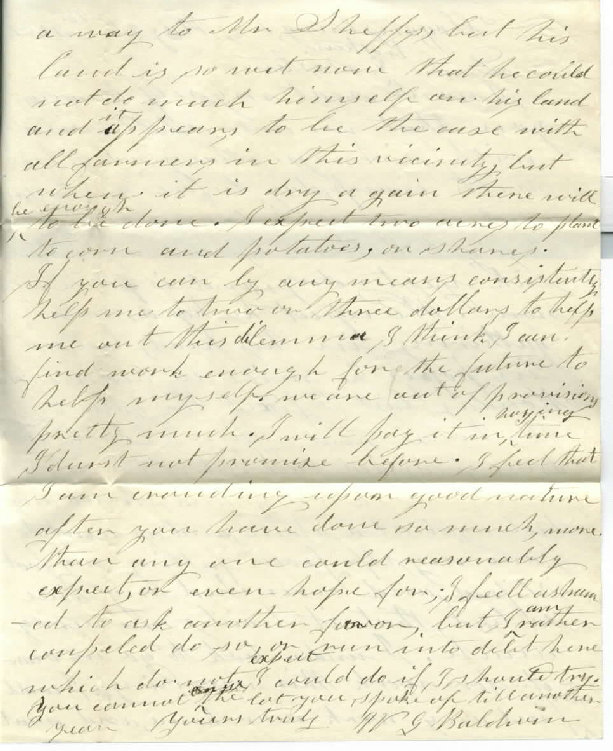 a way to Mr Sheffys, but his
land is so wet now that he could
not do much himself on his land
and it appears to be the case with
all farmers in this vicinity, but
when it is dry again there will
be enough
to be done. I expect two acres to plant
to corn and potatoes, on shares.
If you can by any means consistently
help me to two or three dollars to help
me out this dilemma, I think I can
find work enough for the future to
help myself. we are out of provisions
haying
pretty much. I will pay it in time
I durst not promise before. I feel that
I am crouding upon good nature
after you have done so much, more
than any one could reasonably
expect, or even hope for; I feell asham
-ed to ask another favor, but I am rather
compeled do so, or run into debt here
expect
which do not I could do if I should try.
You cannot the lot you spoke of till another
year Yours truly W G Baldwin